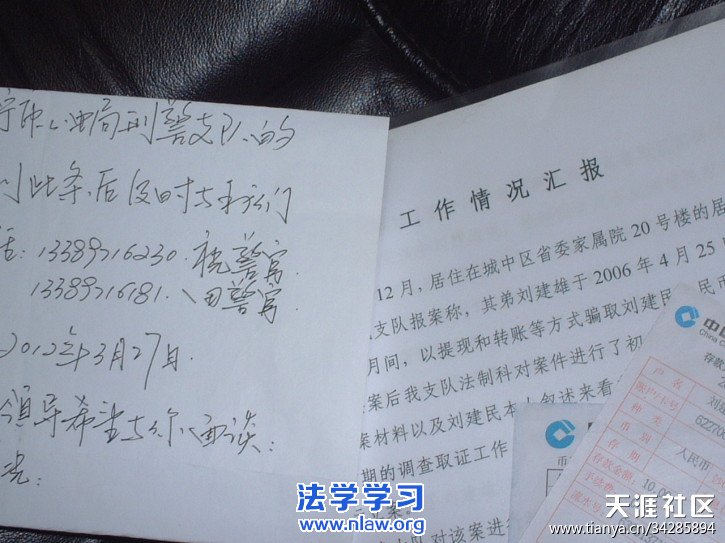 宁市公安局刑警支队的
到此条后及时与我们
话:13389716230.祝警官
13389716181.田警官
2012年3月27日.
领导希望与你面谈:
工作情况汇报
12月,居住在城中区省委家属院20号楼的居
支队报案称,其弟刘建雄于2006年4月25
月间,以提现和转账等方式骗取刘建民
民币
案后我支队法制科对案件进行了初
案材料以及刘建民本人叙述来看
期的调查取证工作
立案。
对该案进行
中国
China C
存款
户名
刘
账户/卡号
62270
种类
币别
人民币
存期
存款金额:
10,00
手续费
流水号
币
法学学习
www.nlaw.org
天涯社区
www.tianya.cn/34285894